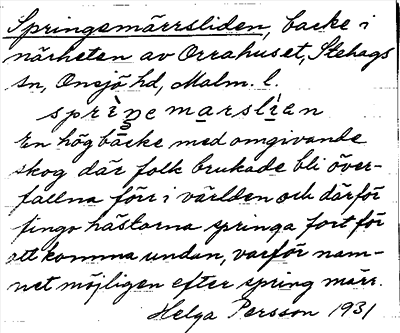 Springemärrsliden, backe i
närheten av Orrahuset, Stehags
sn, Onsjö hd, Malm. l.
sprìŋemarslíen
En hög backe med omgivande
skog där folk brukade bli över-
fallna förr i världen och därför
fingo hästarna springa fort för
att komma undan, varför nam-
net möjligen efter spring märr.
Helga Persson 1931